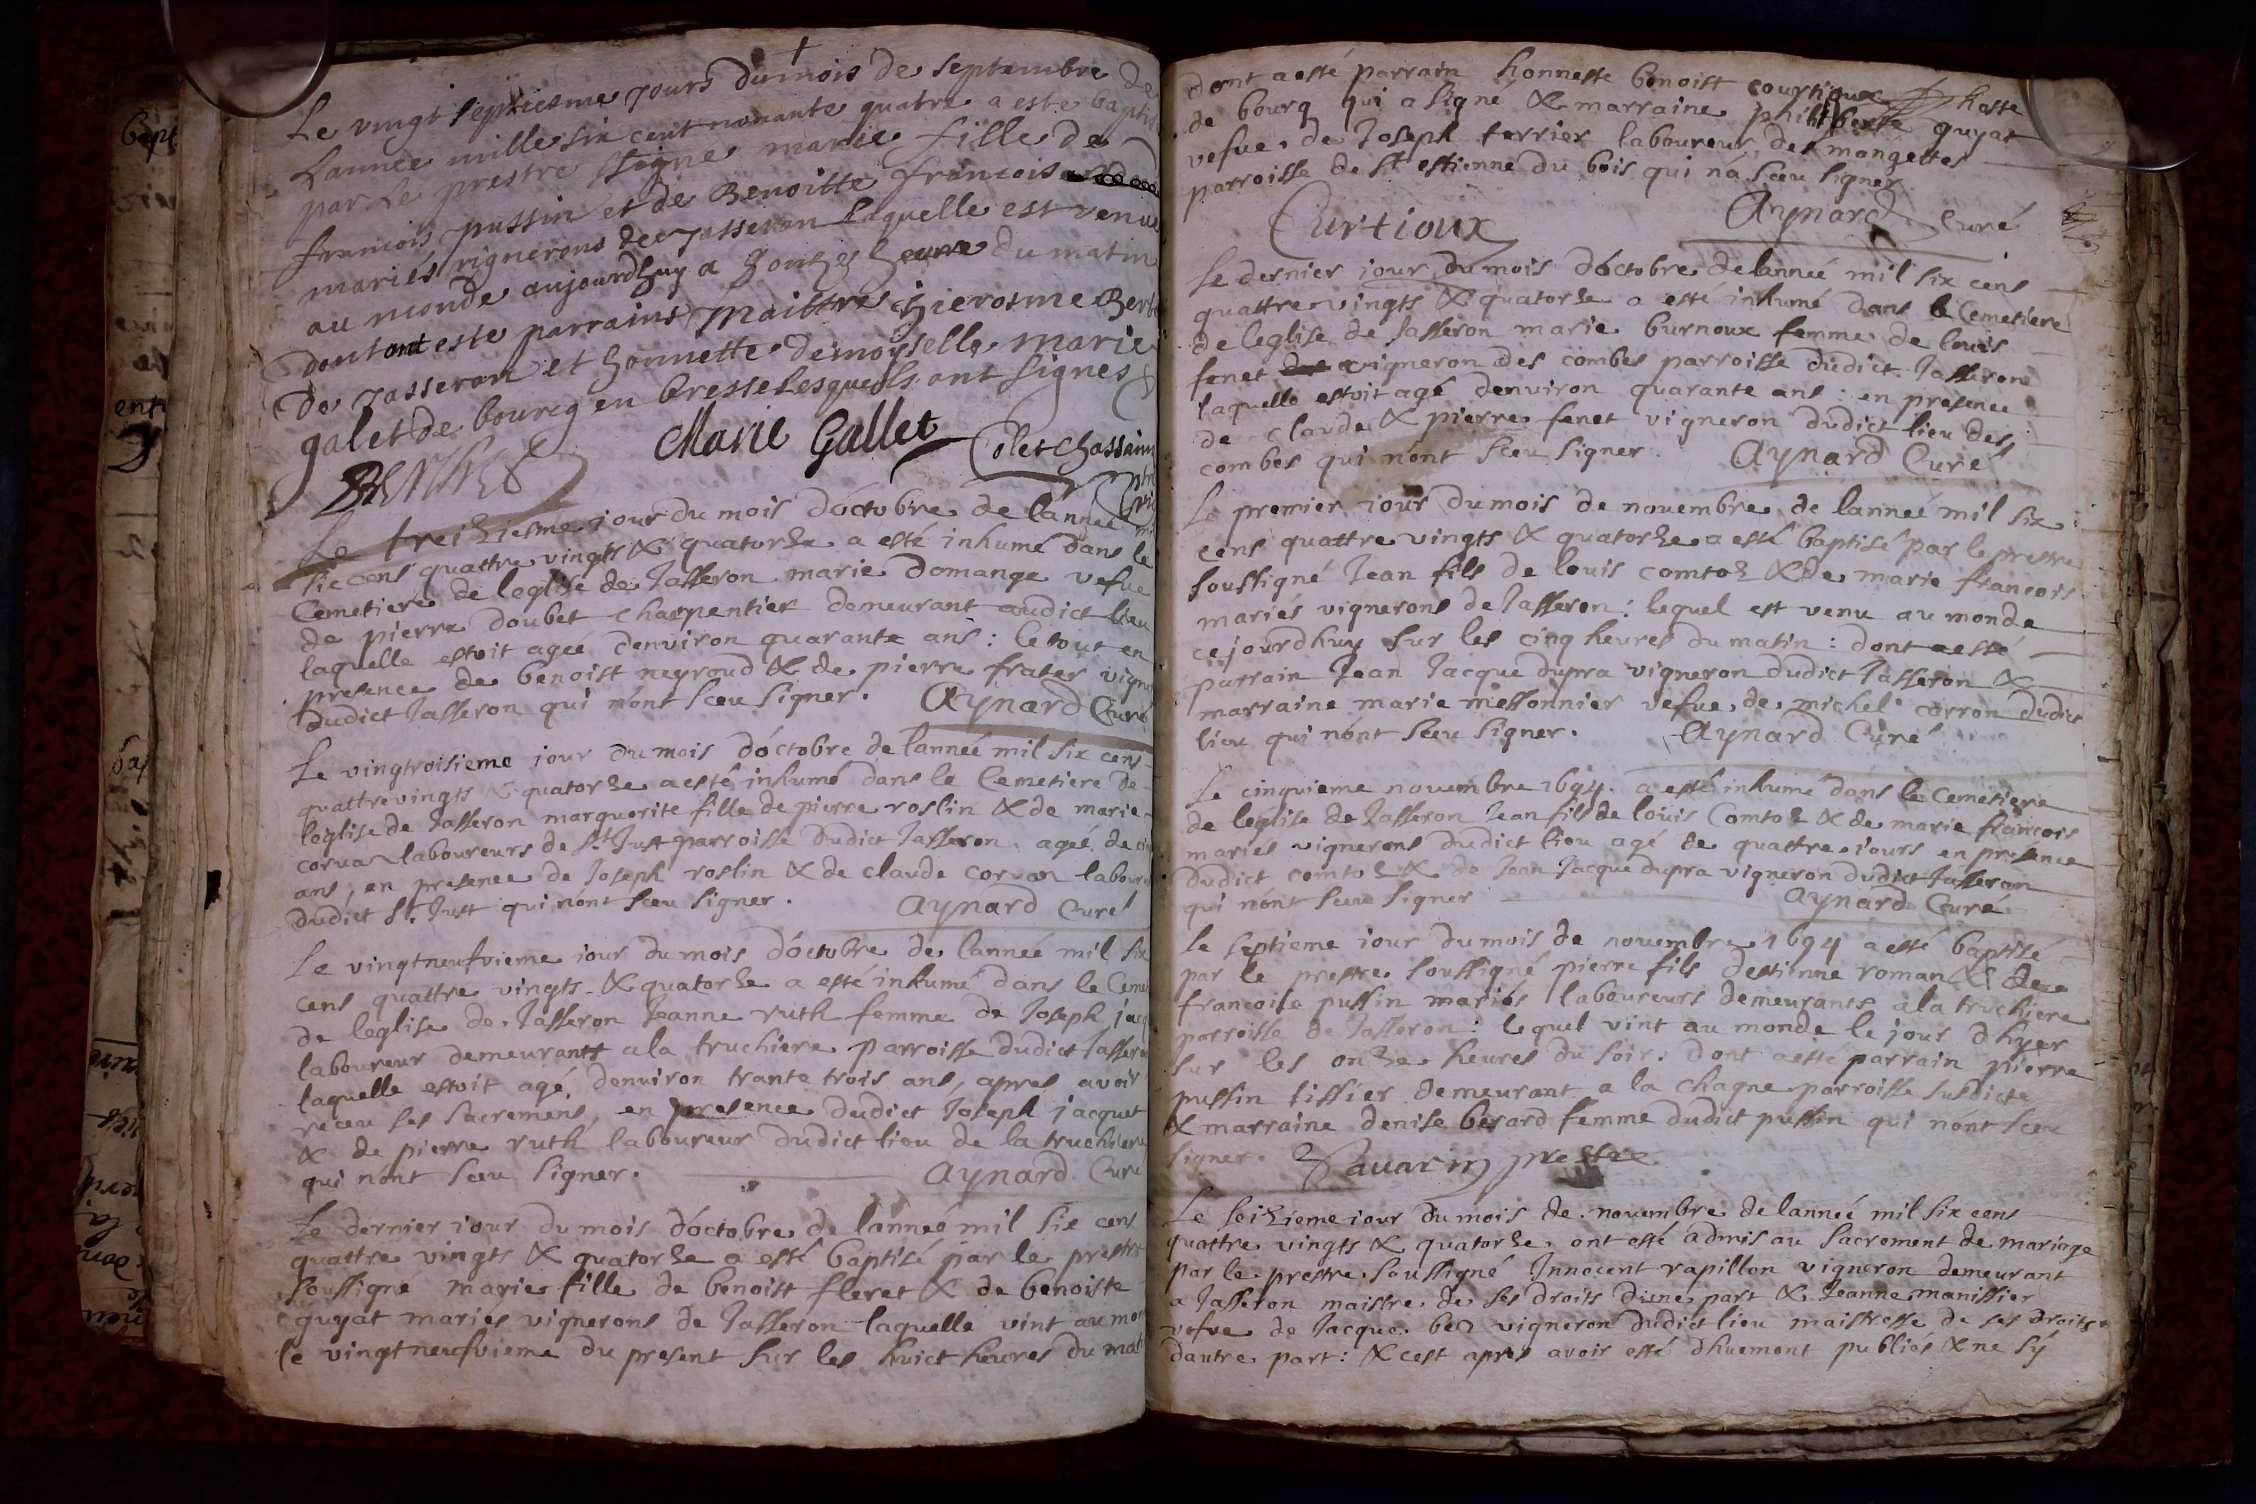 Le vingt septiesme jours du mois de septembre de
Lannée mille six cent nonante quatre a este bapti
par Le prestre ssigne marie fille de
francois pussin et de Benoitte francois
mariés vignerons de Jasseron Laquelle est venue
au monde aujourdhuy a honzes heure du matin
dont ont este parrains maittre hierosme Bert
De Jasseron et honnette demoyselle marie
galet de bourcg en bresse Lesquells ont signes
Marie Gallet Colet Chassain
Le treiziesme jour du mois d'octobre de l'année mil
six cens quattre vingts & quatorze a esté inhumé dans le
Cemetiere de leglise de Jasseron marie Domange vefue
de pierre doubet charpentier demeurant audict lieu
laquelle estoit ageé denviron quarante ans : le tout en
presence de benoist neyroud & de pierre frater vigne
dudict Jasseron qui n'ont sceu signer. Aynard Curé
Le vingtroisieme jour du mois d'octobre de lanneé mil six cens
quattre vingts & quatorze a esté inhumé dans le Cemetiere de
leglise de Jasseron marguerite fille de pierre roslin & de marie
corvan laboureurs de St. Just parroisse dudict Jasseron, ageé de
ans, en presence de Joseph roslin & de claude corvan laboure
dudict St. Just qui n'ont sceu signer. Aynard Curé
Le vingtneufvieme jour du mois d'octobre de lanneé mil six
cens quattre vingts & quatorze a esté inhumé dans le Ceme
de leglise de Jasseron Jeanne ruth femme de Joseph jacq
laboureur demeurants a la truchiere parroisse dudict Jasseron
laquelle estoit agé denviron trante trois ans, apres avoir
receu ses sacremens, en presence dudict Joseph jacquet
& de pierre ruth laboureur dudict lieu de la truchiere
qui n'ont sceu signer. Aynard Curé
Le dernier jour du mois d'octobre de lanneé mil six cens
quattre vingts & quatorze a esté baptisé par le prestre
soussigné marie fille de benoist fleret & de benoiste
guyat mariés vignerons de Jasseron laquelle vint au mon
le vingtneufvieme du present sur les huict heures du mat
dont a esté parrain honneste benoist courtioux
de bourg qui a signé & marraine philiberte guyat
vefue de Joseph terrier laboureur des mangettes
parroisse de St estienne du bois qui n'a sceu signer
Curtioux Aynard Curé
Le dernier jour du mois d'octobre de lanneé mil six cens
quattre vingts & quatorze a esté inhumé dans le Cemetiere
de leglise de Jasseron marie burnoux femme de louis
fenet vigneron des combes parroisse dudict Jasseron
laquelle estoit agé denviron quarante ans : en presence
de claude & pierre fenet vigneron dudict lieu des
combes qui n'ont sceu signer. Aynard Curé
Le premier jour du mois de novembre de lanneé mil six
cens quattre vingts & quatorze a esté baptisé par le prestre
soussigné Jean fils de louis comtoz & de marie francois
mariés vignerons de Jasseron : lequel est venu au monde
cejourdhuy sur les cinq heures du matin : dont a esté
parrain Jean Jacque dupra vigneron dudict Jasseron &
marraine marie messonnier vefue de michel carron dudict
lieu qui n'ont sceu signer. Aynard Curé
Le cinquieme novembre 1694. a esté inhumé dans le Cemetiere
de leglise de Jasseron Jean fils de louis Comtoz & de marie francois
mariés vignerons dudict lieu agé de quattre jours en presence
dudict comtoz & de Jean Jacque dupra vigneron dudict Jasseron
qui n'ont sceu signer Aynard Curé
le septieme jour du mois de novembre 1694 a esté baptisé
par le prestre soussigné pierre fils destienne roman & de
francoise pussin mariés laboureurs demeurants a la truchiere
parroisse de Jasseron : lequel vint au monde le jour d'hyer
sur les onze heures du soir : dont a esté parrain pierre
pussin tissier demeurant a la chagne parroisse susdicte
& marraine denise berard femme dudict pussin qui n'ont sceu
signer. Savarin prestre
Le seizieme jour du mois de novembre de lanneé mil six cens
quattre vingts & quatorze ont esté admis au sacrement de mariage
par le prestre soussigné Innocent rapillon vigneron demeurant
a Jasseron maistre de ses droits d'une part & Jeanne manissier
vefue de Jacque bez vigneron dudict lieu maistresse de ses droits
dautre part : & cest apres avoir esté dhuement publiés & ne sy